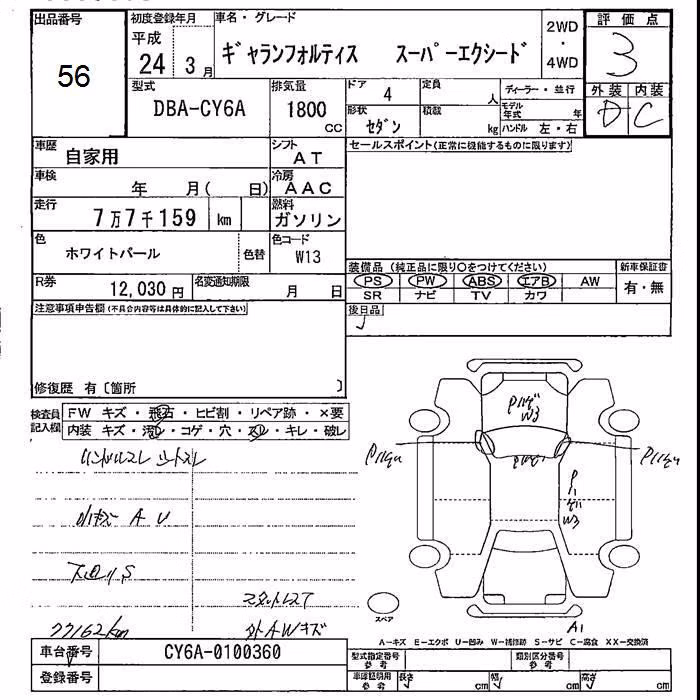 出品番号
56
初度登録年月
平成
24 3月
車名・グレード
ギャランフォルティス スーパーエクシード
2WD
・
4WD
評価点
3
型式
DBA-CY6A
排気量
1800
cc
ドア 4
形状
セダン
定員
人
積載
kg
ディーラー・並行
モデル年式 年
ハンドル 左・右
外装 内装
D C
車歴
自家用
シフト
AT
セールスポイント(正常に機能するものに限ります)
車検
年 月( 日)
冷房
AAC
走行
7万7千159 km
燃料
ガソリン
色
ホワイトパール
色替
色コード
W13
装備品 (純正品に限り○をつけてください)
新車保証書
PS PW ABS エアB AW
有・無
SR ナビ TV カワ
R券
12,030円
名変通知期限
月 日
後日品
注意事項申告欄(不具合内容等は具体的に記入して下さい)
修復歴 有〔箇所 〕
検査員
記入欄
FW キズ・飛石・ヒビ割・リペア跡・×要
内装 キズ・汚れ・コゲ・穴・スレ・キレ・破レ
ハンドルスレ シートスレ
小キズ A U
下回りS
スタットレスT
77162km
外AWキズ
W3
W3
A1
スペア
A-キズ E-エクボ U-凹み W-補修跡 S-サビ C-腐食 XX-交換済
車台番号
CY6A-0100360
登録番号
型式指定番号
参考
類別区分番号
参考
車庫証明用
参考
長さ cm 幅 cm 高さ cm